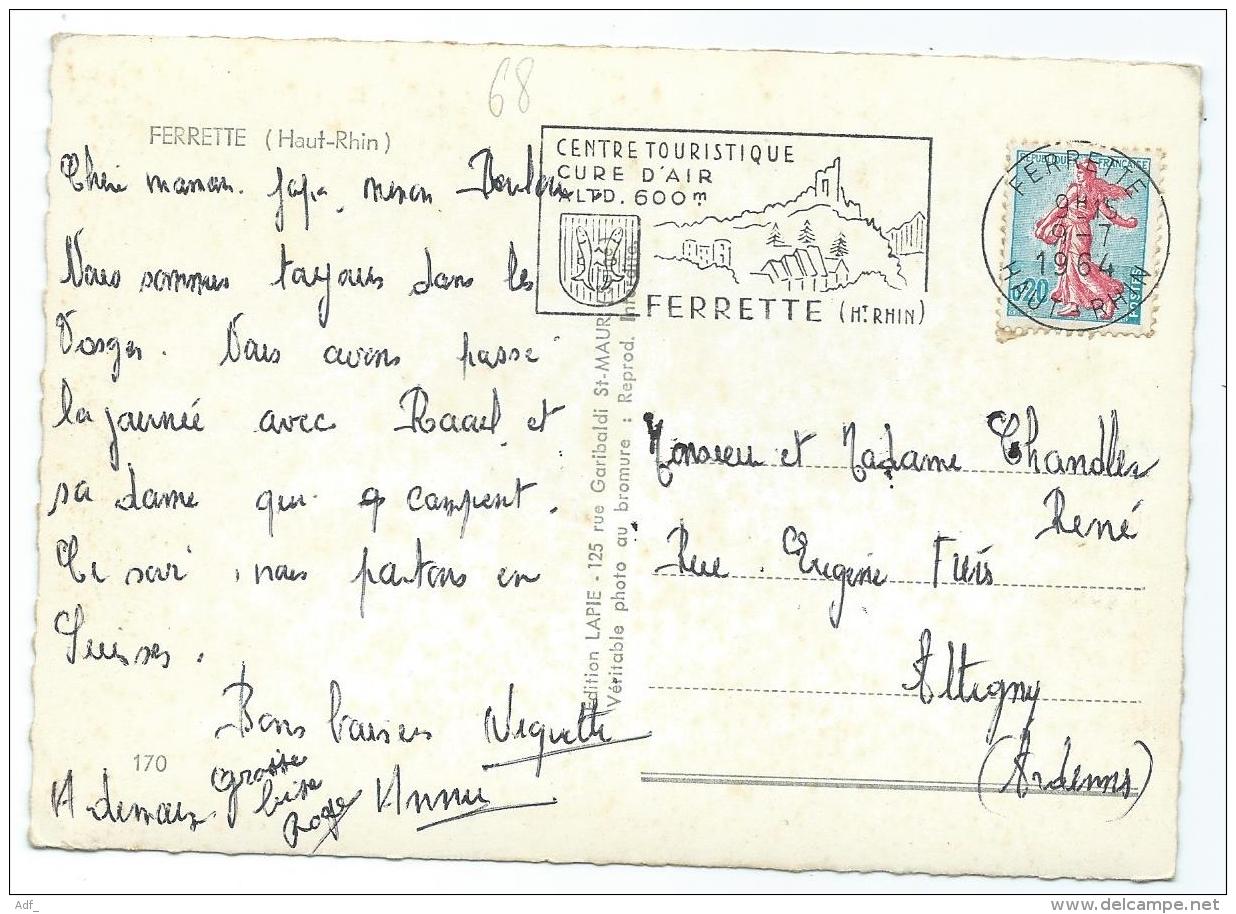 68
FERRETTE (Haut-Rhin)
CENTRE TOURISTIQUE
CURE D'AIR
ALTD. 600m
FERRETTE (HT RHIN)
REPUBLIQUE FRANÇAISE
0,20
POSTES
FERRETTE
9H15
9-7
1964
HAUT-RHIN
Chère maman. papa,
Nous sommes toujours dans les
Vosges. Nous avons passé
la journée avec et
sa dame qui campent.
Ce soir, nous partons en
Suisses.
Bons baisers
grosse
bise
Annie
170
Edition LAPIE - 125 rue Garibaldi St-MAUR
Véritable photo au bromure : Reprod. Interdite
Monsieur et Madame Chandler
René
Rue Eugène
Attigny
(Ardennes)
Adf_
www.delcampe.net